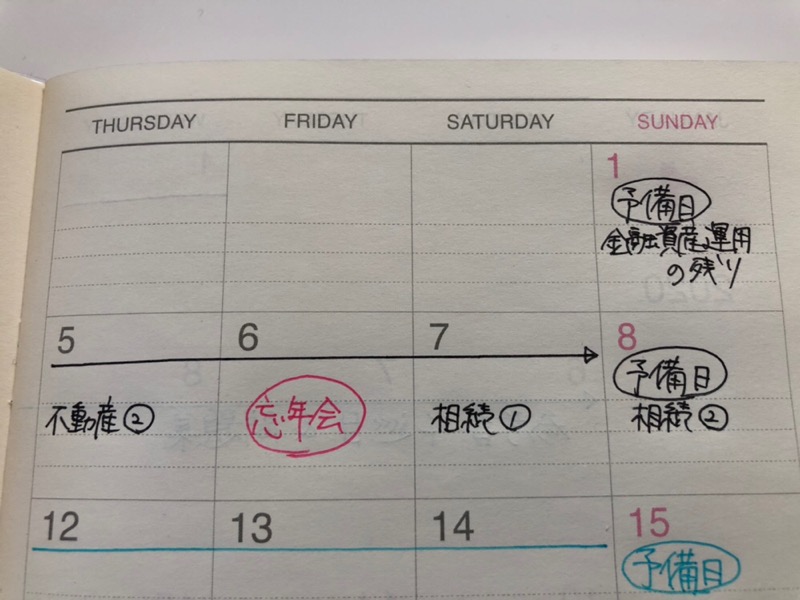 THURSDAY FRIDAY SATURDAY SUNDAY
1
予備日
金融資産運用
の残り
5 6 7 8
予備日
不動産② 忘年会 相続① 相続②
12 13 14 15
予備日